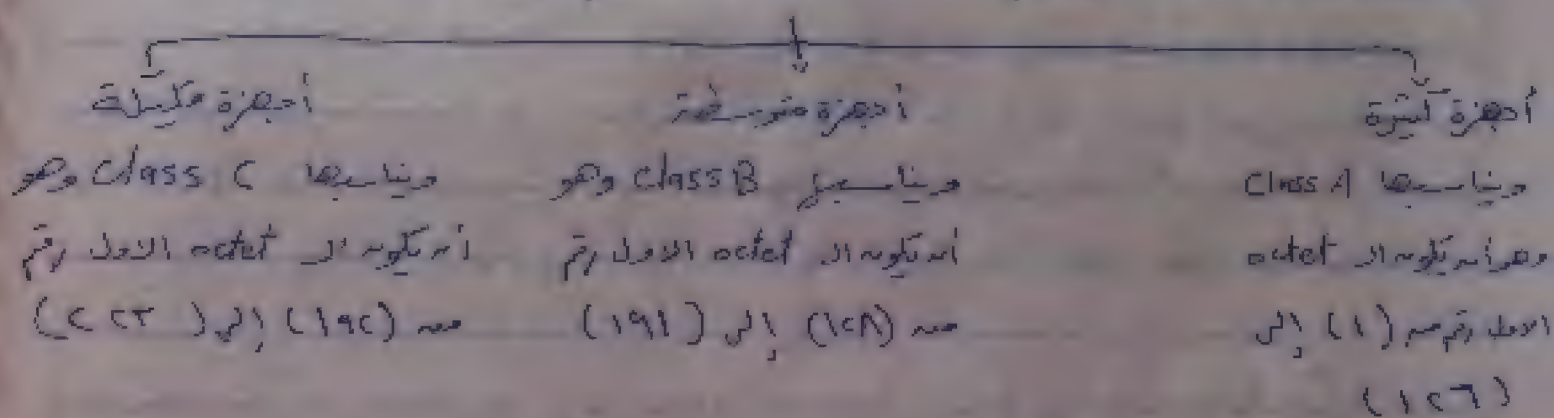 أجهزة كثيرة
ويناسبها Class A
وهو أن يكون الـ octet
الأول رقم من (١) إلى
(١٢٦)
أجهزة متوسطة
ويناسبها Class B وهو
أن يكون الـ octet الأول رقم
من (١٢٨) إلى (١٩١)
أجهزة قليلة
ويناسبها Class C وهو
أن يكون الـ octet الأول رقم
من (١٩٢) إلى (٢٢٣)